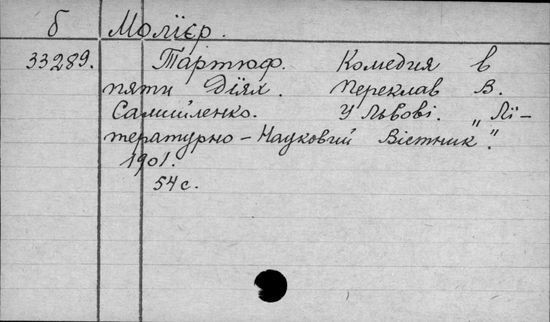 б Молїєр.
33289. Тартюф. Комедия в
пяти дїях. Переклав В.
Самийленко. У Львові. „Лї-
тературно-Науковий Вістник".
1901.
54 с.